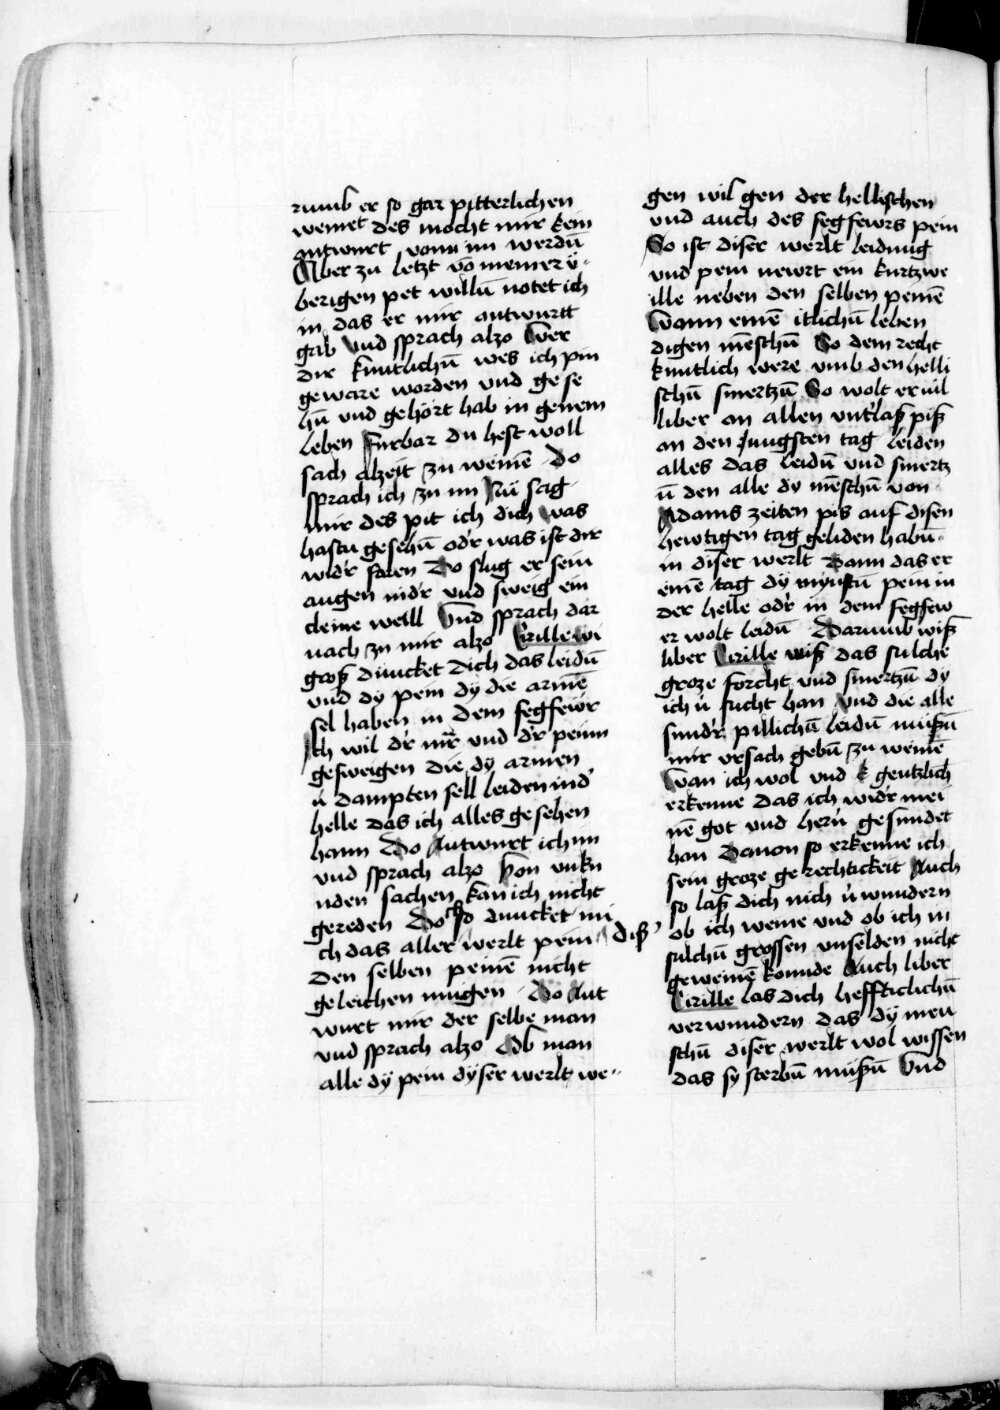 rumb er so gar pitterlichen
weinet des mocht mir kein
antwurt vonn im werdū
Aber zu letzt vō meiner ü-
berigen pet willū notet ich
in das er mir antwurtt
gab Vnd sprach alzo Wer
dir kuntlichū wes ich pin
geware worden vnd gese
hū vnd gehört hab in genem
leben Furbar du hest woll
sach alzeit zu weinē Do
sprach ich zu im Nū sag
mir des pit ich dich was
hastu gesehū odr was ist dir
widr faren Do slug er sein
augen nidr vnd sweig ein
cleine weill Vnd sprach dar
nach zu mir alzo Cirille wi
groß duncket dich das leidū
vnd dy pein dy die armē
sel haben in dem fegfewr
Ich wil dr nir vnd dr peinn
gesweigen die dy armen
ü dampten sell leiden in d'
helle das ich alles gesehen
hann Do Antwurt ich im
vnd sprach alzo Von vnku
nden sachen kan ich nicht
gereden Do so duncket mi
ch das aller werlt pein diß'
den selben peinē nicht
geleichen mugen Do Ant
wurt mir der selbe man
vnd sprach alzo Ob man
alle dÿ pein dÿser werlt we-
gen wil gen der hellischen
vnd auch des fegfewrs pein
So ist diser werlt leidung
vnd pein newrt ein kurtzwe
ille neben den selben peinē
Wann einē itlichū leben
digen mēschū So dem recht
kuntlich were vmb den helli
schū smertzū So wolt er vil
liber an allen vntlaß piß
an den Jungsten tag leiden
alles das leidū vnd smertz
ū den alle dy mēschū von
Adams zeiten pis auf disen
hewtigen tag geliden habū
in diser werlt Dann das er
einē tag dÿ mynstū pein in
der helle odr in dem fegfew
er wolt leidū Darumb wiß
liber Cirille wiß das sulche
groze forcht vnd smertzū dy
ich ü sucht han Vnd die alle
sundr pillichū leidū mußū
mir vrsach gebū zu weinē
Wan ich wol vnd k gentzlich
erkenne das ich widr mei
nē got vnd herū gesundet
han Dauon so erkenne ich
sein groze gerechtickeit Auch
so laß dich nich ü wundern
ob ich weine vnd ob ich in
sulchū grossen vnselden nicht
geweinē konnde Auch liber
Cirille las dich hefftlichū
verwundern das dÿ men
schū diser werlt wol wissen
das sy sterbū mußū Vnd